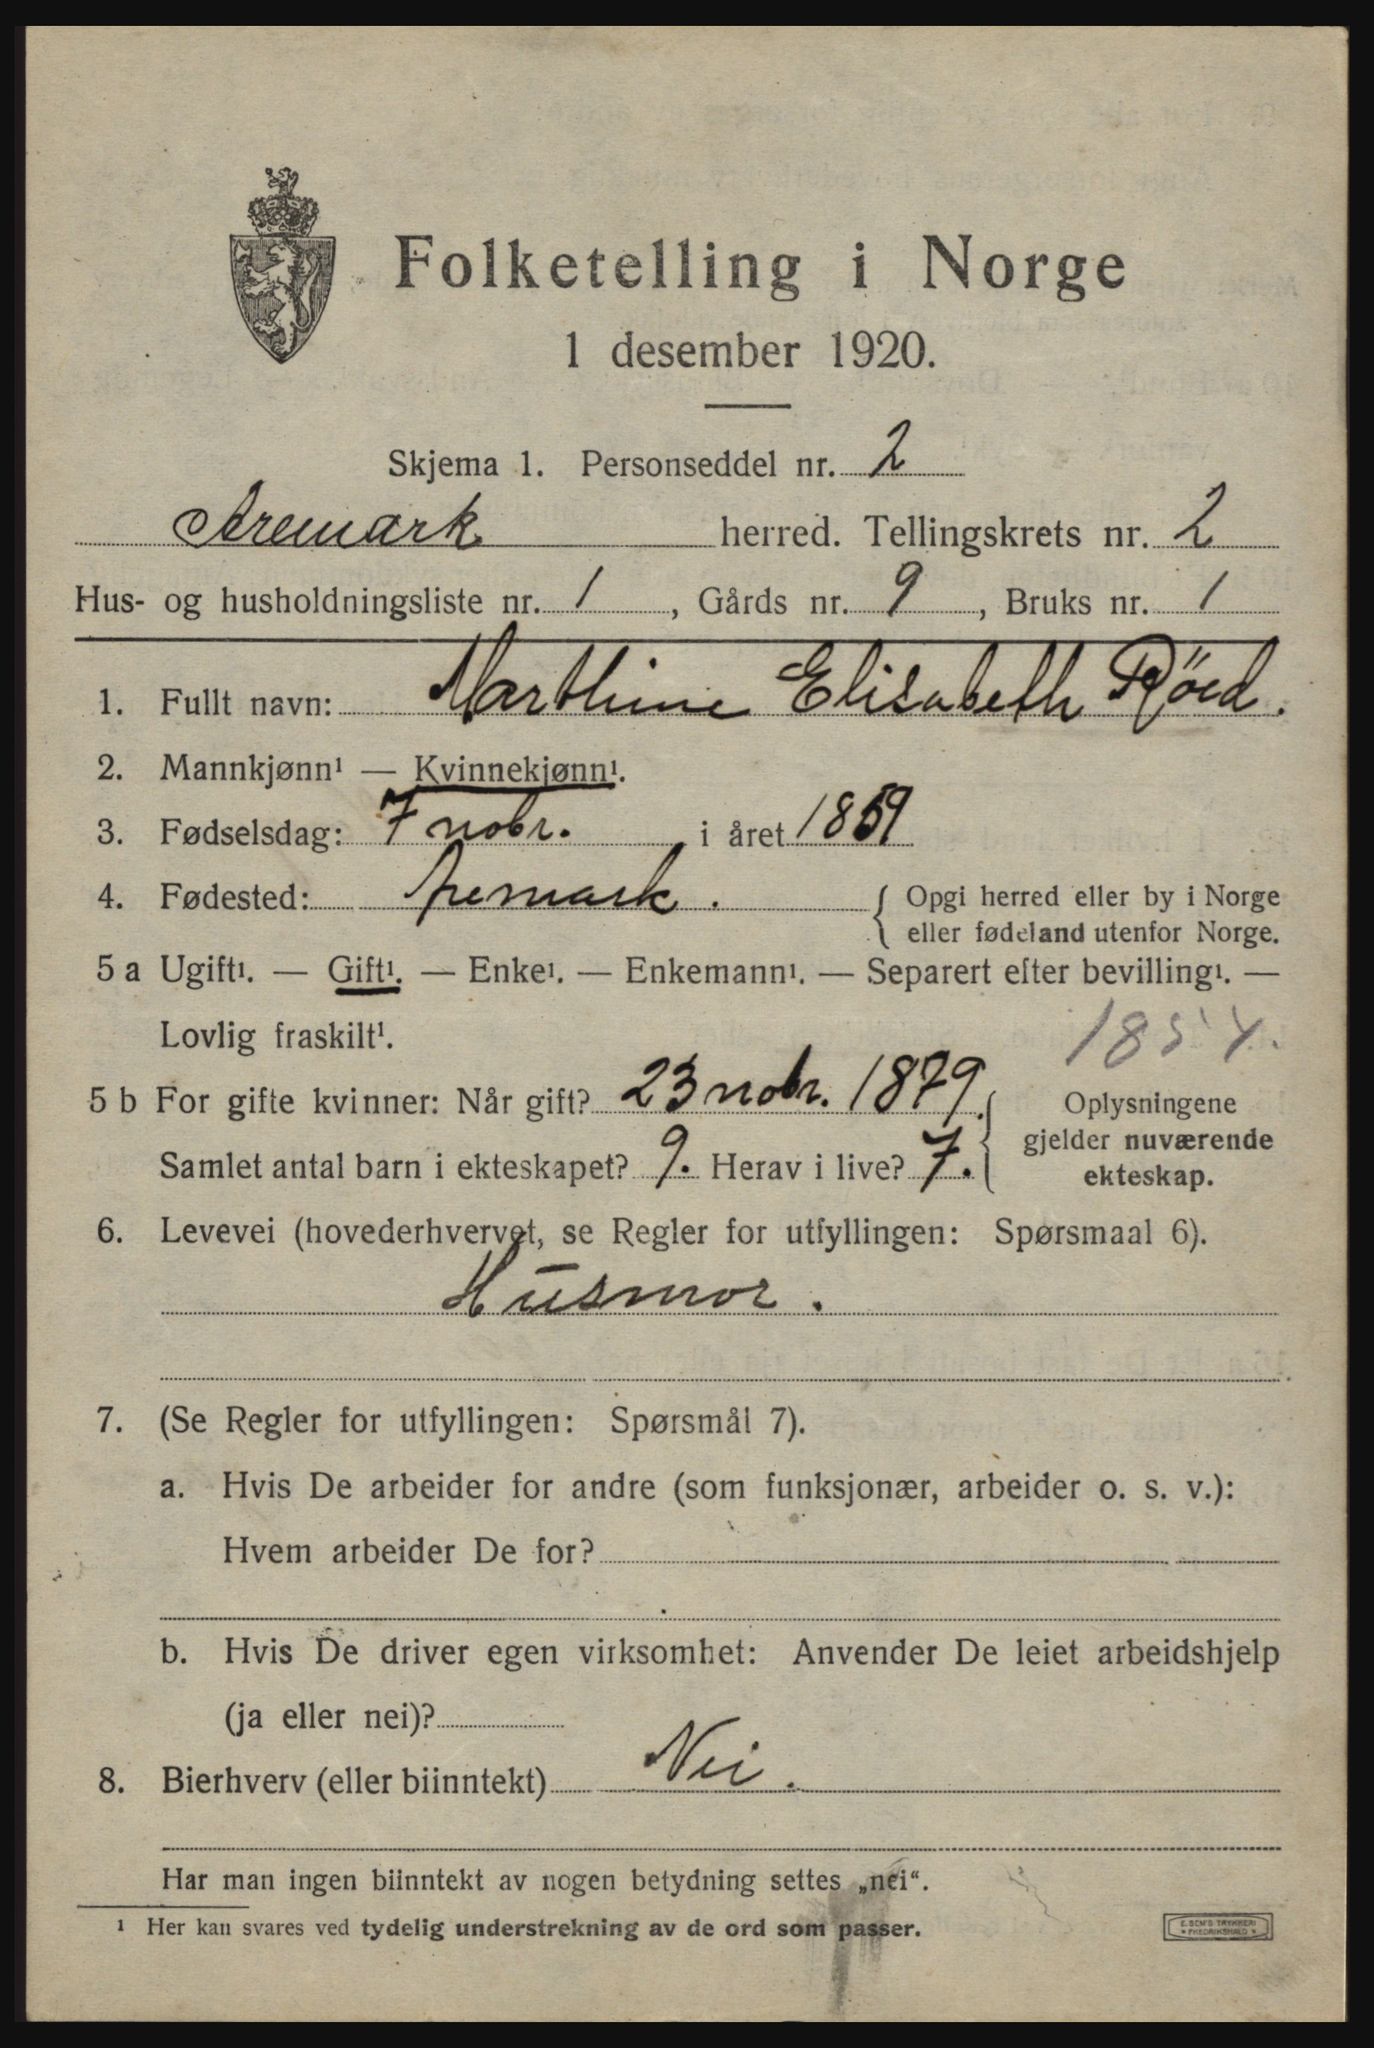 Folketelling i Norge
1 desember 1920.
Skjema 1. Personseddel nr. 2
Aremark herred. Tellingskrets nr. 2
Hus- og husholdningsliste nr. 1, Gårds nr. 9, Bruks nr. 1
1. Fullt navn: Marthine Elisabeth Röed.
2. Mannkjønn¹ — Kvinnekjønn¹.
3. Fødselsdag: 7 nobr. i året 1859
4. Fødested: Aremark. { Opgi herred eller by i Norge
eller fødeland utenfor Norge.
5 a Ugift¹. — Gift¹. — Enke¹. — Enkemann¹. — Separert efter bevilling¹. —
Lovlig fraskilt¹. 1854.
5 b For gifte kvinner: Når gift? 23 nobr. 1879. Oplysningene
gjelder nuværende
Samlet antal barn i ekteskapet? 9. Herav i live? 7. ekteskap.
6. Levevei (hovederhvervet, se Regler for utfyllingen: Spørsmaal 6).
Husmor.
7. (Se Regler for utfyllingen: Spørsmål 7).
a. Hvis De arbeider for andre (som funksjonær, arbeider o. s. v.):
Hvem arbeider De for?
b. Hvis De driver egen virksomhet: Anvender De leiet arbeidshjelp
(ja eller nei)?
8. Bierhverv (eller biinntekt) Nei.
Har man ingen biinntekt av nogen betydning settes „nei“.
¹ Her kan svares ved tydelig understrekning av de ord som passer.
E. SEM'S TRYKKERI
* FREDRIKSHALD *